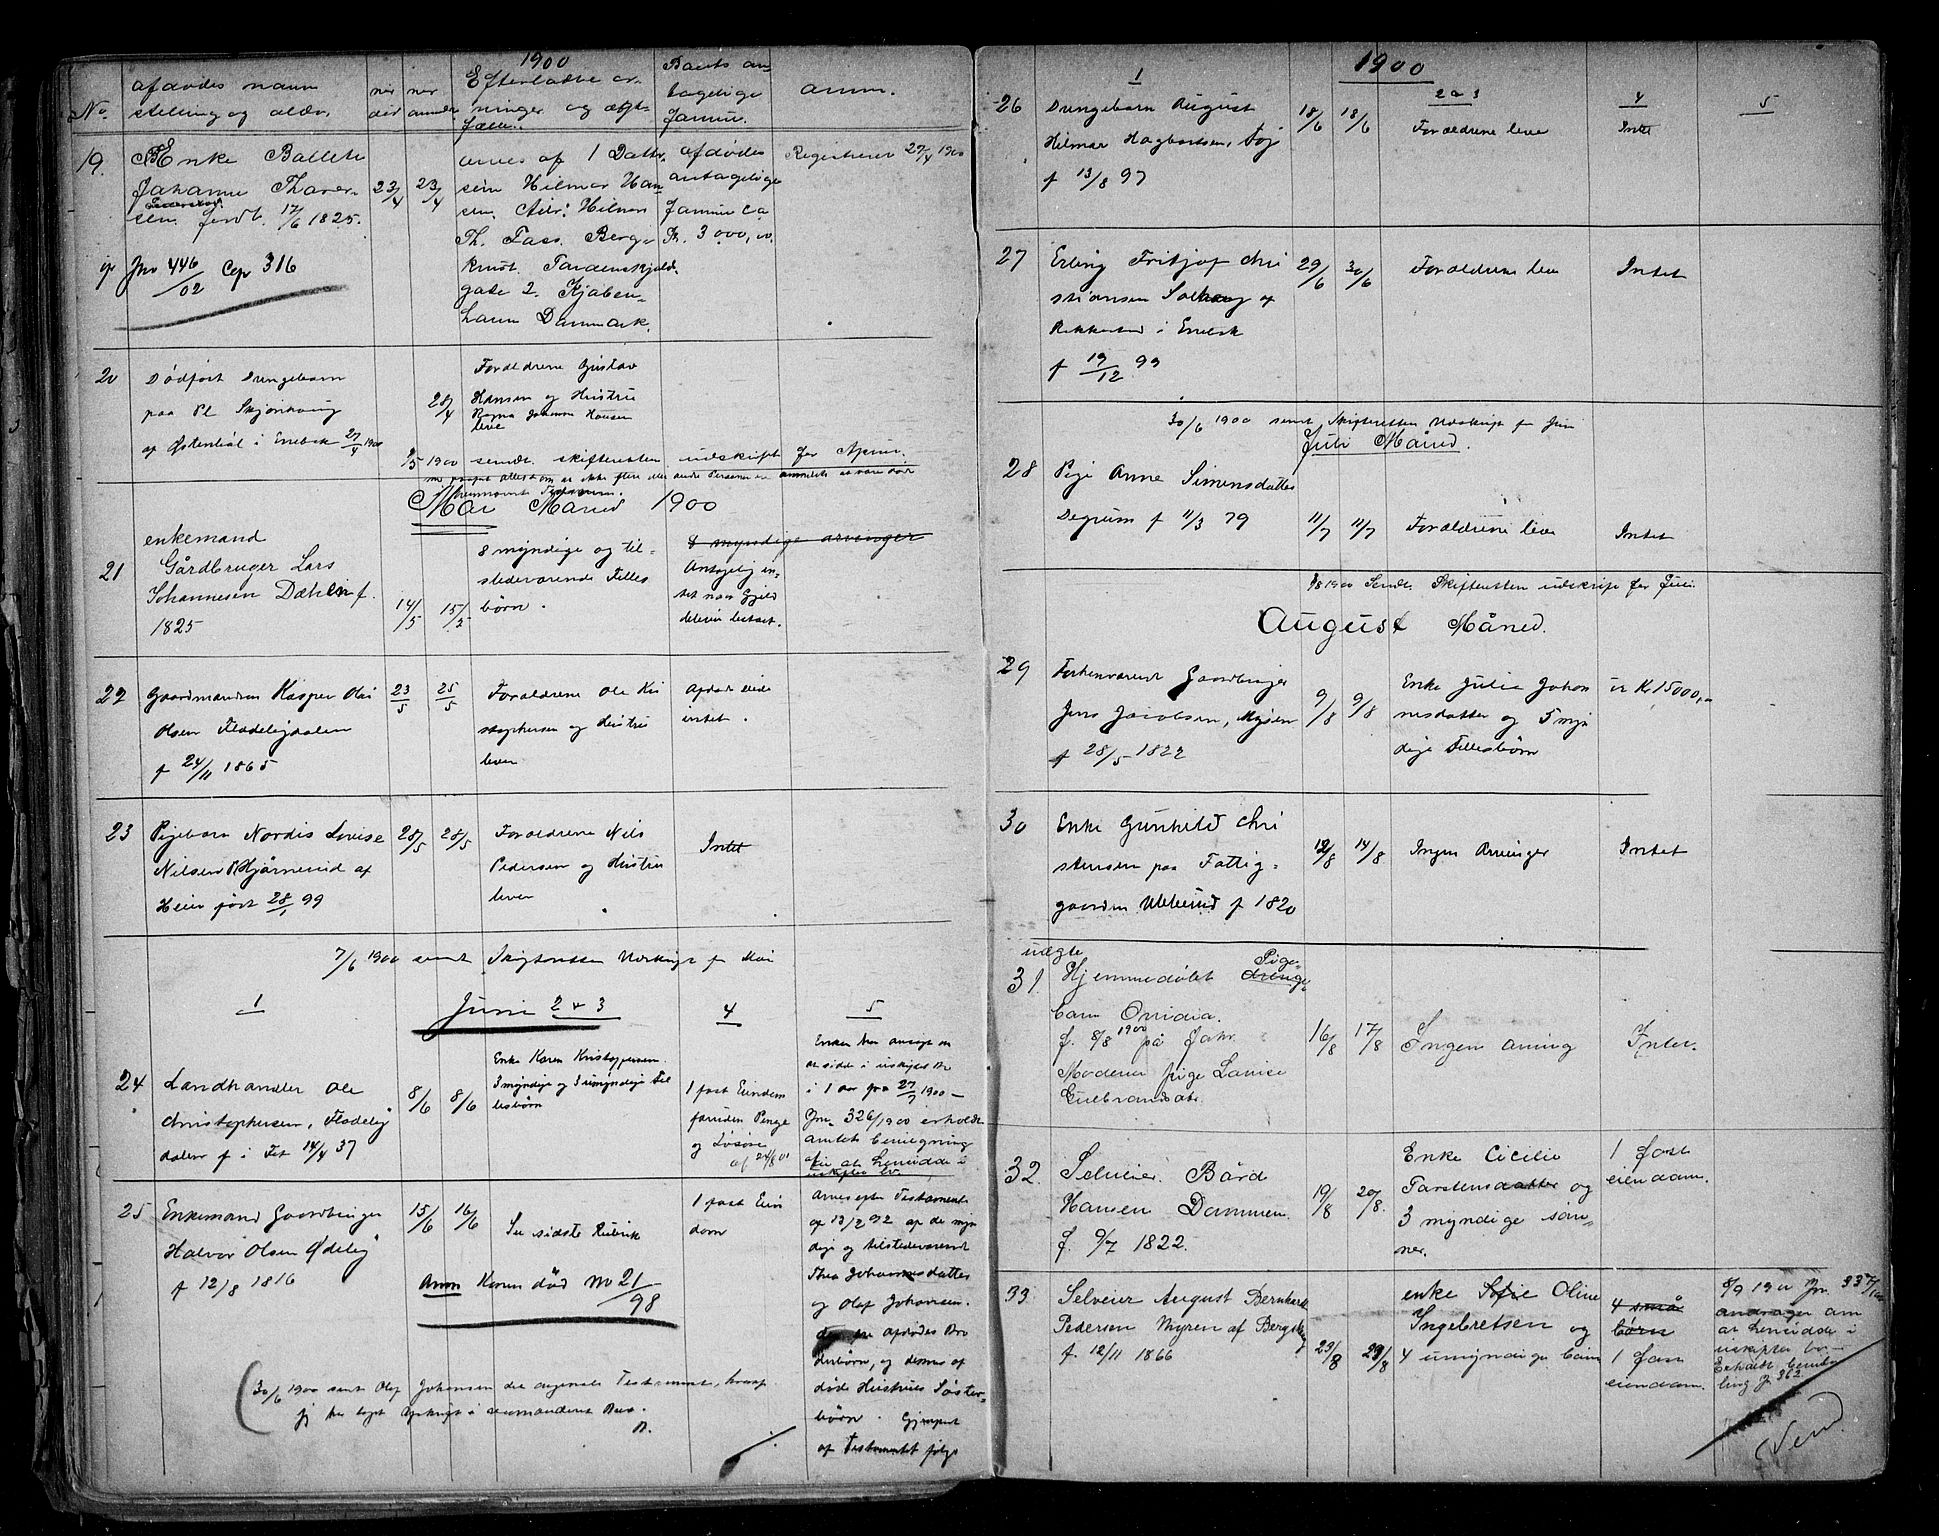 1900
No.
afdødes navn
stilling og alder.
når
død
når
anmeldt
Efterladte ar-
ninger og ægte-
fælle.
Boets an-
tagelige
Formue.
anm.
19.
Enke
Johanne Thorer-
sen. født. 17/6 1825.
23/4
23/4
arves af 1 Datter
Hilmar Han
sen.
Berg-
Tordenskjolds
gade 2. Kjøben-
havn Danmark.
afdødes
antagelige
Formue ca
Kr. 3000,00.
Registreret 27/4 1900
Jnr 446/02 Cop 316
20
Dødfødt Drengebarn
paa Pl Skjønhaug
af Østenbøl i Enebak 27/4 1900
28/4
Foræoldrene Gustav
Hansen og Hustru
Ragna Johanne Hansen
leve
1900 sendt skifteretten udskrift for April.
Mai Måned 1900
21
enkemand
Gårdbruger Lars
Johannesen Dæhlen f.
1825
14/5
15/5
8 myndige og til-
stedeværende Felles
børn.
8 myndige arvinger
Antagelig in-
tet naar Gjeld
bliver betalt.
22
Gaardmandssøn Kasper Olai
Olsen Fladelijdalen
f 24/11 1865
23/5
25/5
Forældrene Ole Kri
stophersen og Hustru
lever
Afdøde eiede
intet.
23
Pigebarn Nordis Lovise
Nilsen Hjårnerud af
Heier født 28/1 99
28/5
28/5
Forældrene Nils
Pedersen og Hustru
lever
Intet
7/6 1900 sendt Skifteretten Udskrift for Mai
1
Juni 2 & 3
4
5
24
Landhandler Ole
Christophersen, Fladelij
dalen f i Fet 14/4 37
8/6
8/6
Enke Karen Kristophersen.
3 myndige og 3 umyndige Fel
lesbørn
1 fast Eiendom
foruden Penge
og Løsøre
Enken har ansøgt om
at sidde i uskiftet Bo
i 1 aar fra 27/7 1900 –
Jnr. 326/1900 erholdt
amtets bevilgning
til at hensidde i
uskiftet bo.
25
Enkemand Gaardbruger
Halvor Olsen Ødelij
f 12/8 1816
15/6
16/6
Se sidste Rubrik
Anm Konen død No 21/98
1 fast Eien
dom
Arves efter Testamente
af 13/2 92 af de myn
dige og tilstedeværende
Thea Johannesdatter
og Olof Johansen.
afdødes Bro
derbørn, og dennes af
døde Hustrues Søster-
børn. Gjenpart
af Testamentet følge
(30/6 1900 sendt Olof Johansen det originale Testamente, hvoraf
jeg har taget Afskrift
1900
1
2 & 3
4
5
26
Drengebarn August
Hilmar Hagbartsen,
f 13/8 97
18/6
18/6
Forældrene leve
Intet
27
Erling Fritjof Chri
stiansen Solhaug af
Rekkestad i Enebak
f 19/12 99
29/6
30/6
Forældrene leve
Intet
30/6 1900 sendt Skifteretten Udskrift for Juni
Juli Måned.
28
Pige Anna Simensdatter
Degrum f 11/3 79
11/7
11/7
Forældrene leve
Intet
1/8 1900 Sendt Skifteretten udskrift for Juli.
August Måned.
29
Forhenværende Gaardbruger
Jens Jacobsen, Mysen
f 28/5 1822
9/8
9/8
Enke Julia Johan
nesdatter og 5 myn
dige Fellesbørn
Kr 15000,–
30
Enke Gunhild Chri
stensen paa Fattig-
gaarden Ullerud f 1820
12/8
14/8
Ingen Arvinger
Intet
31.
uægte
Hjemmedøbt Pige-
drenge-
barn Ovidia.
f. 8/8 1900 på
Moderen pige Lovise
Gulbrandsdtr.
16/8
17/8
Ingen arving
Intet.
32.
Selveier. Bård
Hansen Dammen.
f. 9/7 1822.
19/8
20/8.
Enke Cicilie
Torstensdatter og
3 myndige søn-
ner.
1 fast
eiendom.
33.
Selveier August Bernhard
Pedersen Myren af Bergskaug
f. 12/11 1866
23/8
29/8
enke Sofie Oline
Ingebretsen og
4 umyndige børn
4 små
børn
1 fast
eiendom.
8/9 1900 Jn. 337/1900
andrager om
at hensidde i
uskiftet bo –
Erholdt bevil
ling J 362
(Vend